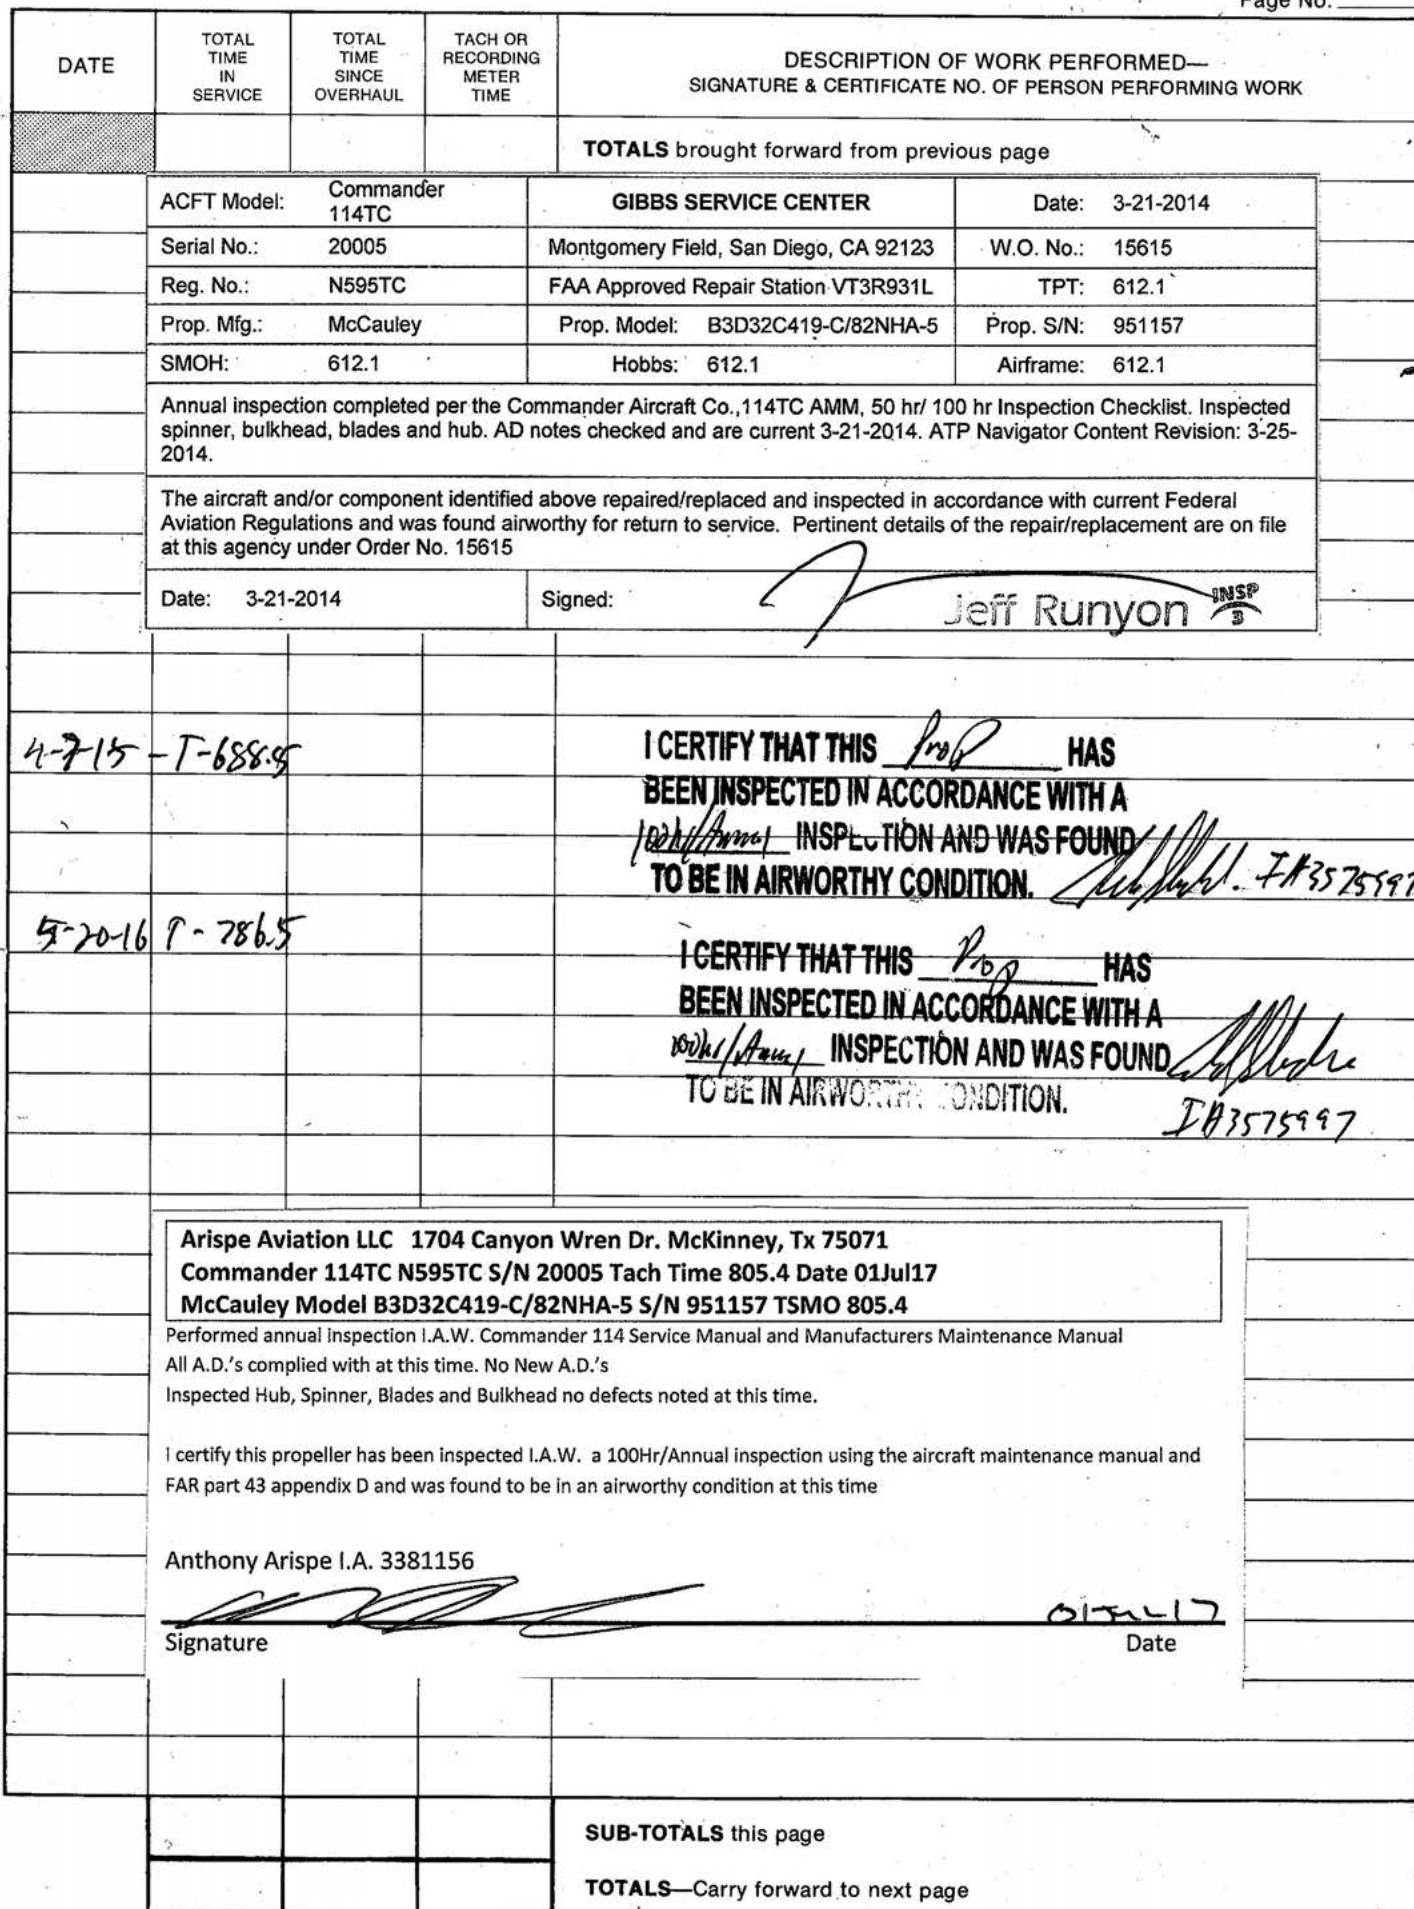 Page No.
DATE
TOTAL TIME IN SERVICE
TOTAL TIME SINCE OVERHAUL
TACH OR RECORDING METER TIME
DESCRIPTION OF WORK PERFORMED—
SIGNATURE & CERTIFICATE NO. OF PERSON PERFORMING WORK
TOTALS brought forward from previous page
ACFT Model: Commander 114TC GIBBS SERVICE CENTER Date: 3-21-2014
Serial No.: 20005 Montgomery Field, San Diego, CA 92123 W.O. No.: 15615
Reg. No.: N595TC FAA Approved Repair Station VT3R931L TPT: 612.1
Prop. Mfg.: McCauley Prop. Model: B3D32C419-C/82NHA-5 Prop. S/N: 951157
SMOH: 612.1 Hobbs: 612.1 Airframe: 612.1
Annual inspection completed per the Commander Aircraft Co.,114TC AMM, 50 hr/ 100 hr Inspection Checklist. Inspected
spinner, bulkhead, blades and hub. AD notes checked and are current 3-21-2014. ATP Navigator Content Revision: 3-25-
2014.
The aircraft and/or component identified above repaired/replaced and inspected in accordance with current Federal
Aviation Regulations and was found airworthy for return to service. Pertinent details of the repair/replacement are on file
at this agency under Order No. 15615
Date: 3-21-2014 Signed: Jeff Runyon INSP 3
4-7-15 - T-688.5 I CERTIFY THAT THIS Prop HAS
BEEN INSPECTED IN ACCORDANCE WITH A
100hr/Annual INSPECTION AND WAS FOUND
TO BE IN AIRWORTHY CONDITION. IA3575997
5-20-16 T- 786.5
I CERTIFY THAT THIS Prop HAS
BEEN INSPECTED IN ACCORDANCE WITH A
100hr/Annual INSPECTION AND WAS FOUND
TO BE IN AIRWORTHY CONDITION.
IA3575997
Arispe Aviation LLC 1704 Canyon Wren Dr. McKinney, Tx 75071
Commander 114TC N595TC S/N 20005 Tach Time 805.4 Date 01Jul17
McCauley Model B3D32C419-C/82NHA-5 S/N 951157 TSMO 805.4
Performed annual inspection I.A.W. Commander 114 Service Manual and Manufacturers Maintenance Manual
All A.D.'s complied with at this time. No New A.D.'s
Inspected Hub, Spinner, Blades and Bulkhead no defects noted at this time.
I certify this propeller has been inspected I.A.W. a 100Hr/Annual inspection using the aircraft maintenance manual and
FAR part 43 appendix D and was found to be in an airworthy condition at this time
Anthony Arispe I.A. 3381156
01-JUL-17
Signature Date
SUB-TOTALS this page
TOTALS—Carry forward to next page